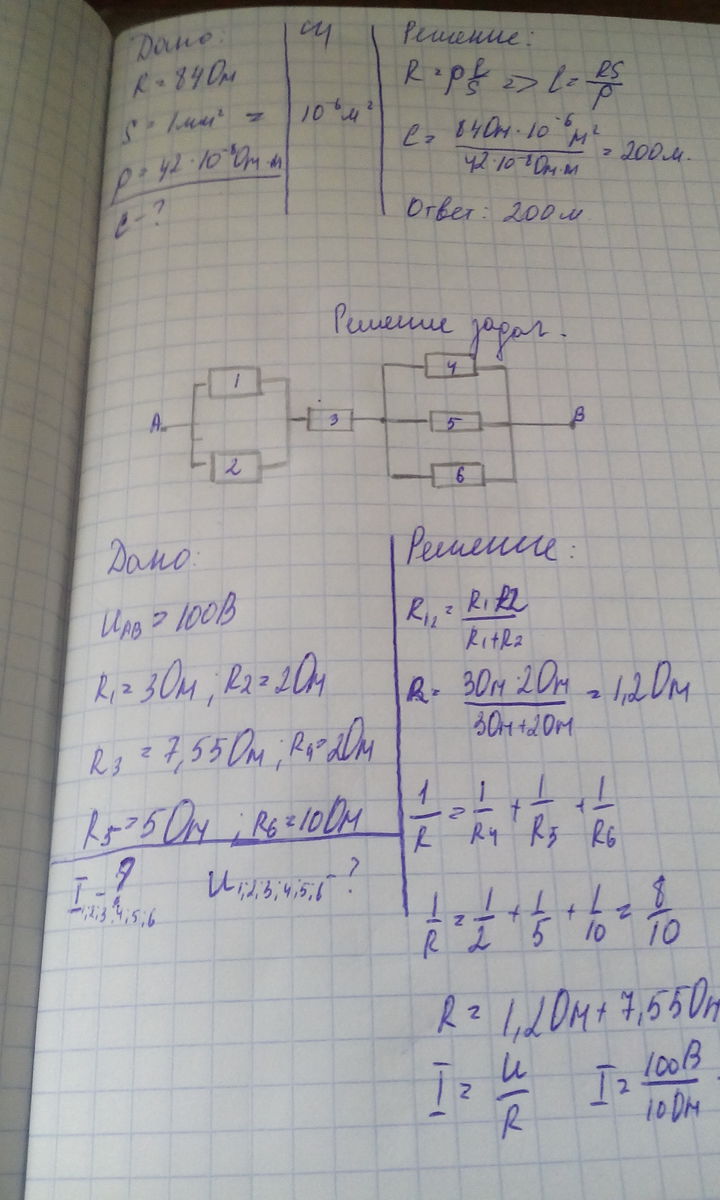 Дано:
R = 84Ом
S = 1мм² =
ρ = 42·10⁻⁸Ом·м
ℓ - ?
СИ
10⁻⁶м²
Решение:
R = ρ ℓ/S => ℓ = RS/ρ
ℓ = 84Ом·10⁻⁶м²/42·10⁻⁸Ом·м = 200м.
Ответ: 200м.
Решение задач.
A
1
2
3
4
5
6
B
Дано:
U_AB = 100В
R₁ = 3Ом; R₂ = 2Ом
R₃ = 7,55Ом; R₄ = 2Ом
R₅ = 5Ом; R₆ = 10Ом
I₁;₂;₃;₄;₅;₆ - ? U₁;₂;₃;₄;₅;₆ - ?
Решение:
R₁₂ = R₁R₂/R₁+R₂
R = 3Ом·2Ом/3Ом+2Ом = 1,2Ом
1/R = 1/R₄ + 1/R₅ + 1/R₆
1/R = 1/2 + 1/5 + 1/10 = 8/10
R = 1,2Ом + 7,55Ом
I = U/R I = 100В/10Ом